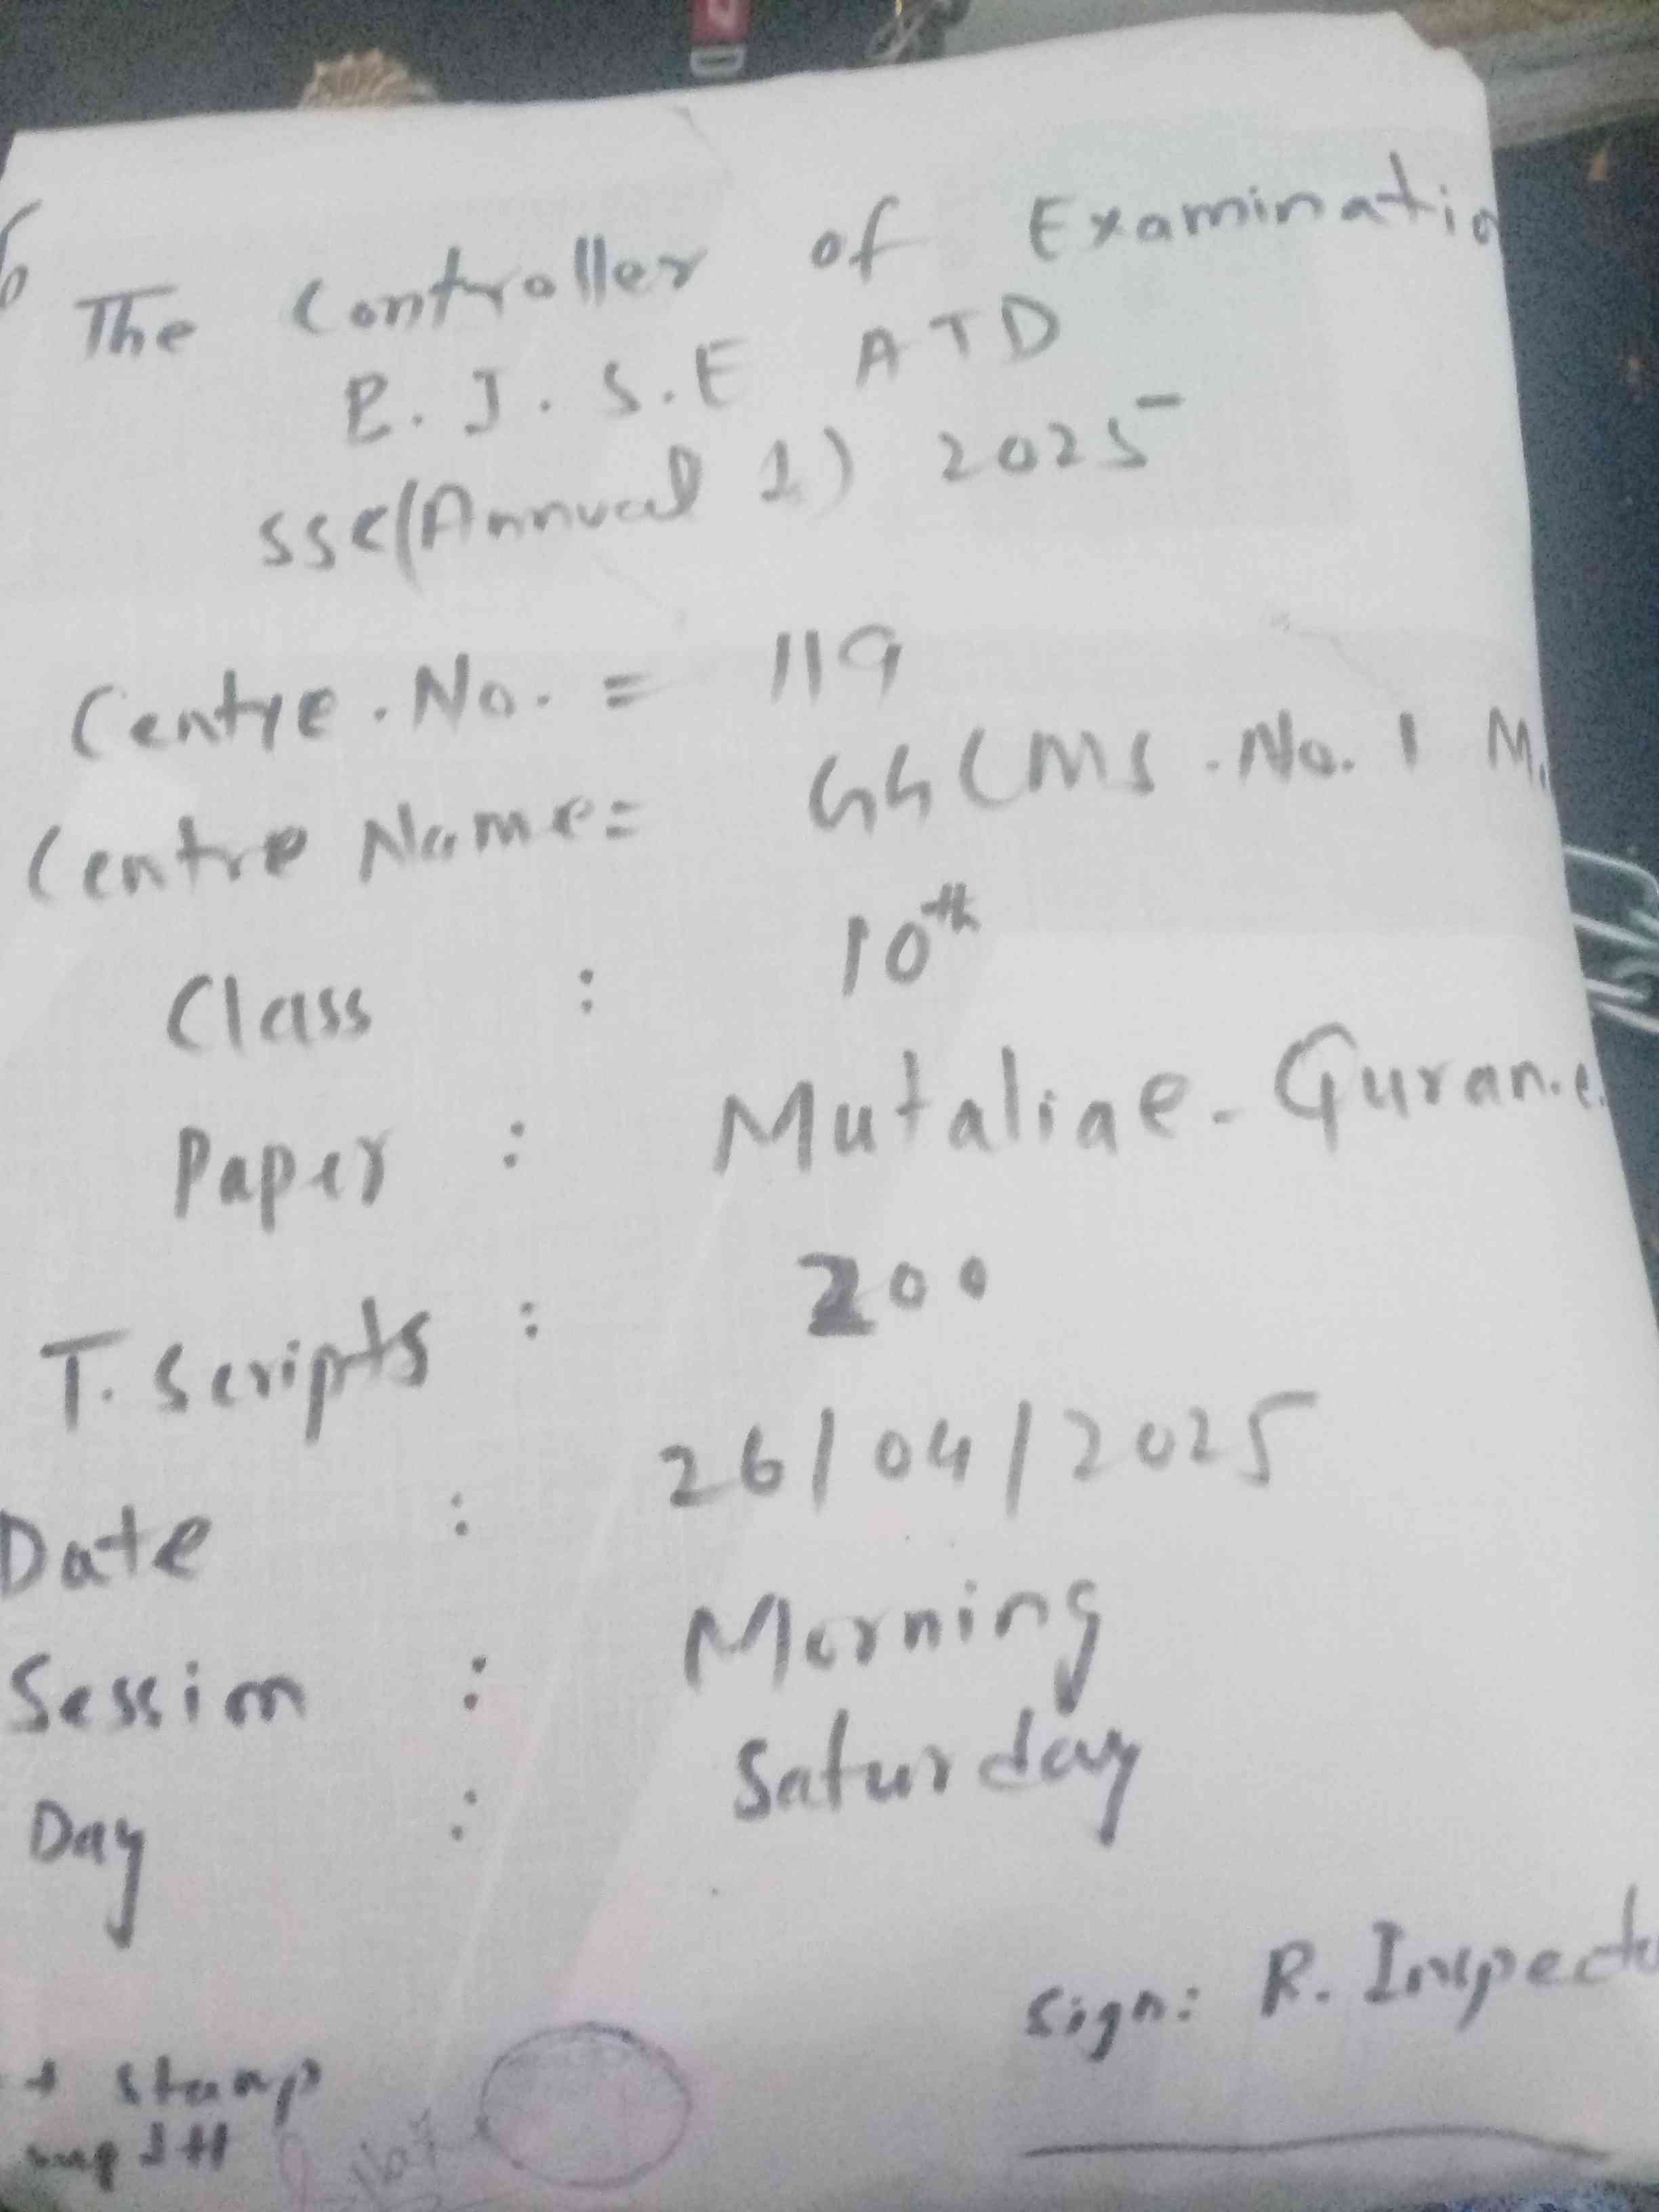 The Controller of Examinatio
B.I.S.E ATD
SSC(Annual 1) 2025
Centre.No. = 119
Centre Name= GGCMS.No.1 M.
Class : 10th
Paper : Mutaliae-Quran.e.
T.Scripts : 200
Date : 26/04/2025
Session : Morning
Day : Saturday
Sign: R.Inspecto
+ stamp